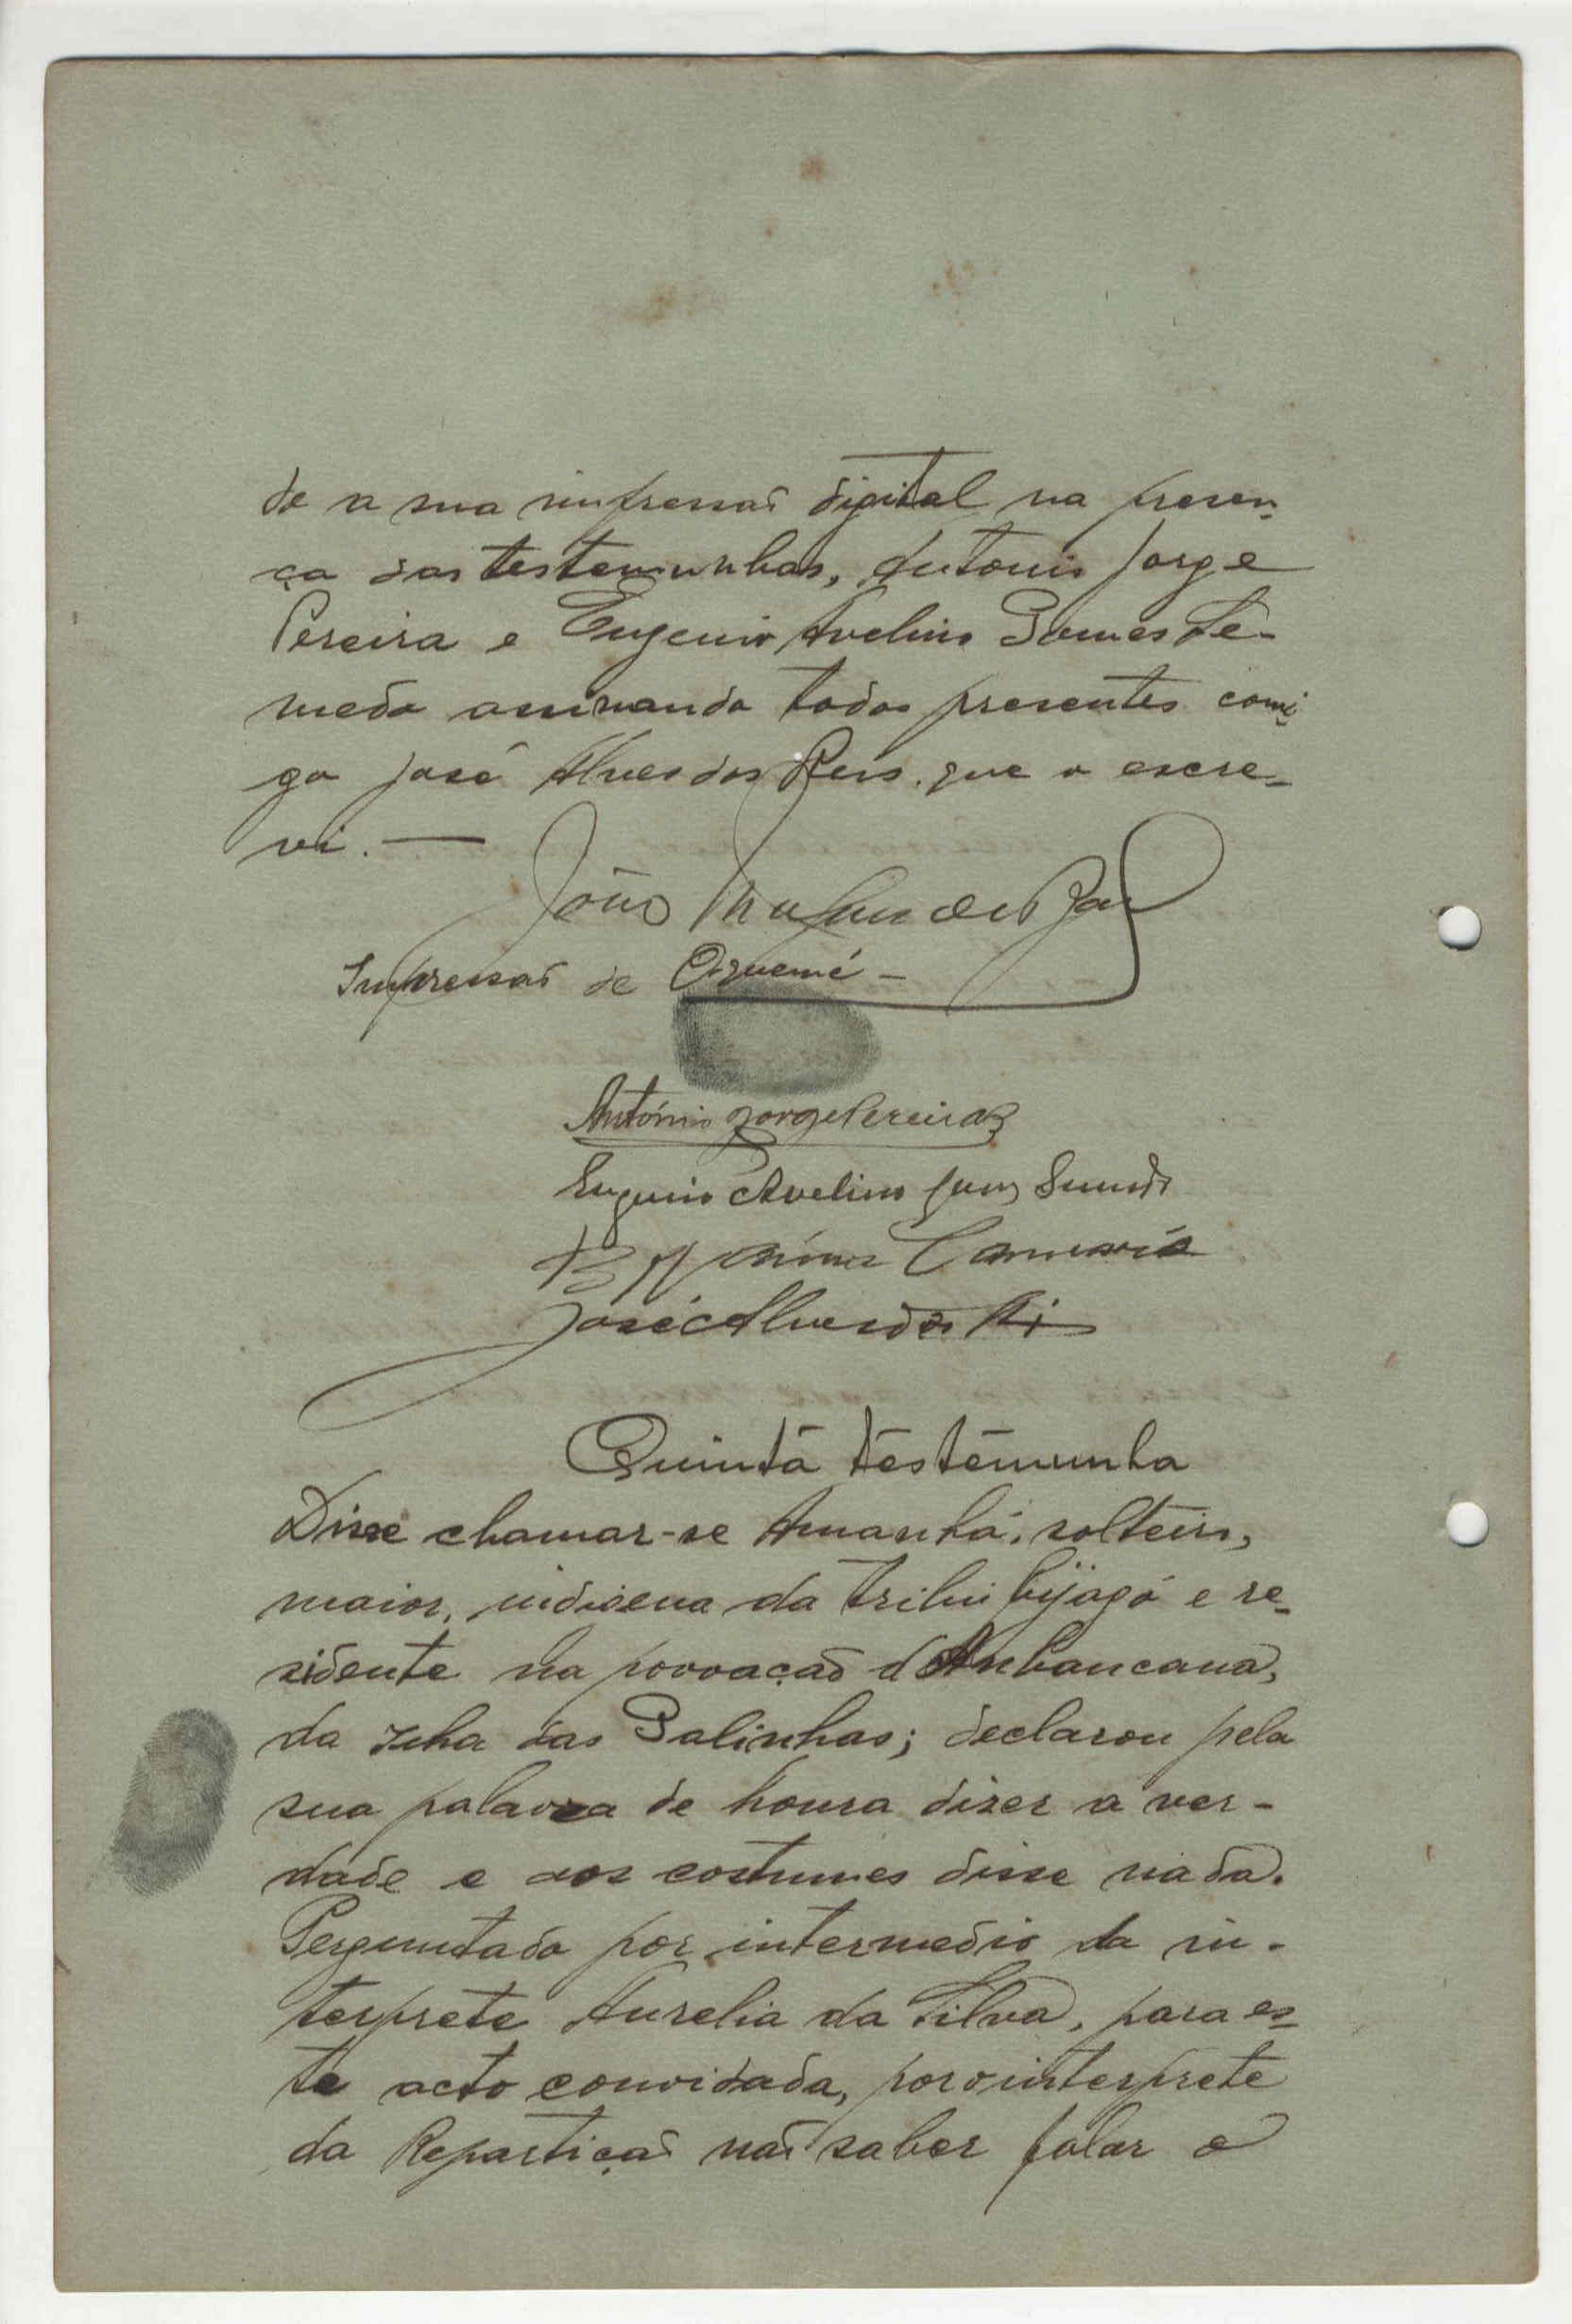 do a sua impressaõ digital na presen-
ça das testemunhas, Antonio Jorge
Pereira e Eugenio Avelino Gomes Se-
medo assinando todos presentes comi-
go José Alves dos Reis que o escre-
vi. —
João
Impressaõ de Oquemé —
António Jorge Pereira
Eugenio Avelino Gomes Semedo
José Alves dos Reis
Quinta testemunha
Disse chamar-se Amanhá, solteiro,
maior, indigena da tribu bijagó e re-
sidente na povoaçaõ d'Anbancana,
da Ilha das Galinhas; declarou pela
sua palavra de honra dizer a ver-
dade e aos costumes disse nada.
Perguntado por intermedio da in-
terprete Aurelia da Silva, para es-
te acto convidada, por o interprete
da Repartiçaõ naõ saber falar o